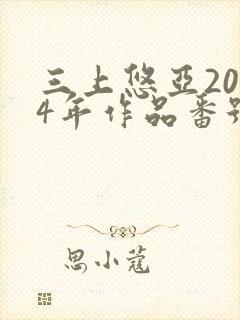 三上悠亞20
4年作品番号
思小蔻